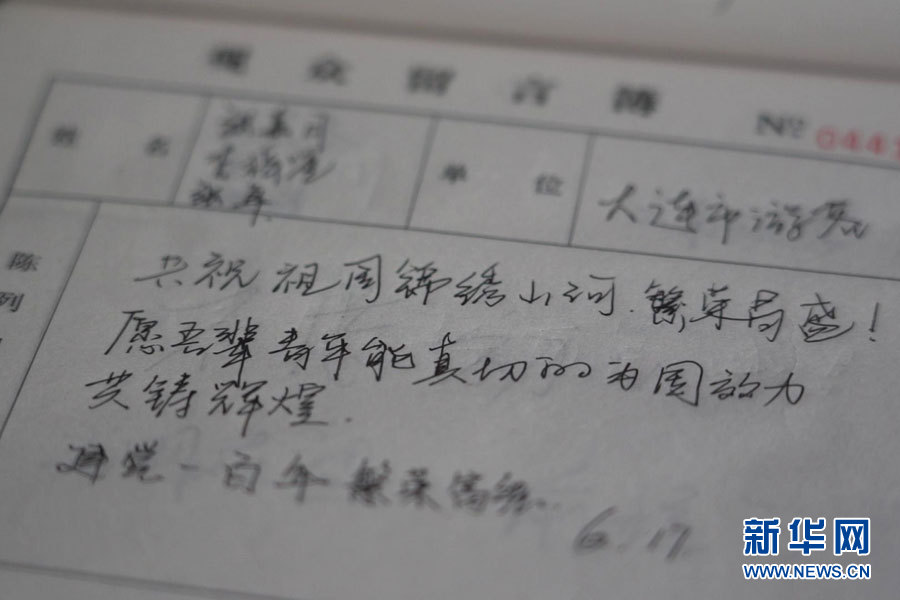 观众留言簿
№ 0441
姓名
张
单位
大连市游客
陈
列
共祝祖国锦绣山河.繁荣昌盛!
愿吾辈青年能真切的为国效力
共铸辉煌.
一百年繁荣
6.17
新华网
WWW.NEWS.CN